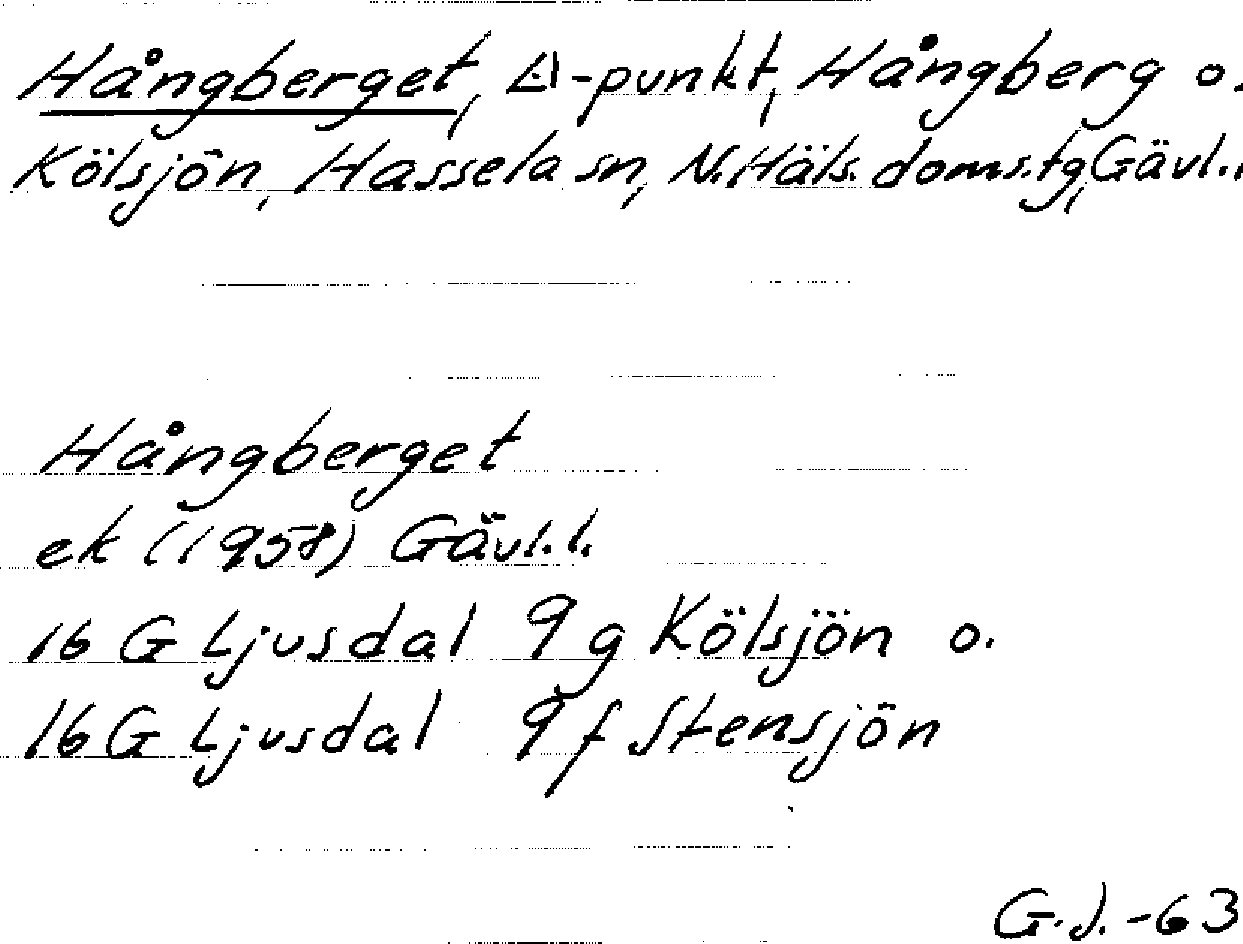 Hångberget, Δ-punkt, Hångberg o.
Kölsjön, Hassela sn, N.Häls. doms.tg, Gävl.l.
Hångberget
ek (1958) Gävl.l.
16 G Ljusdal 9 g Kölsjön o.
16 G Ljusdal 9 f Stensjön
G.J. -63